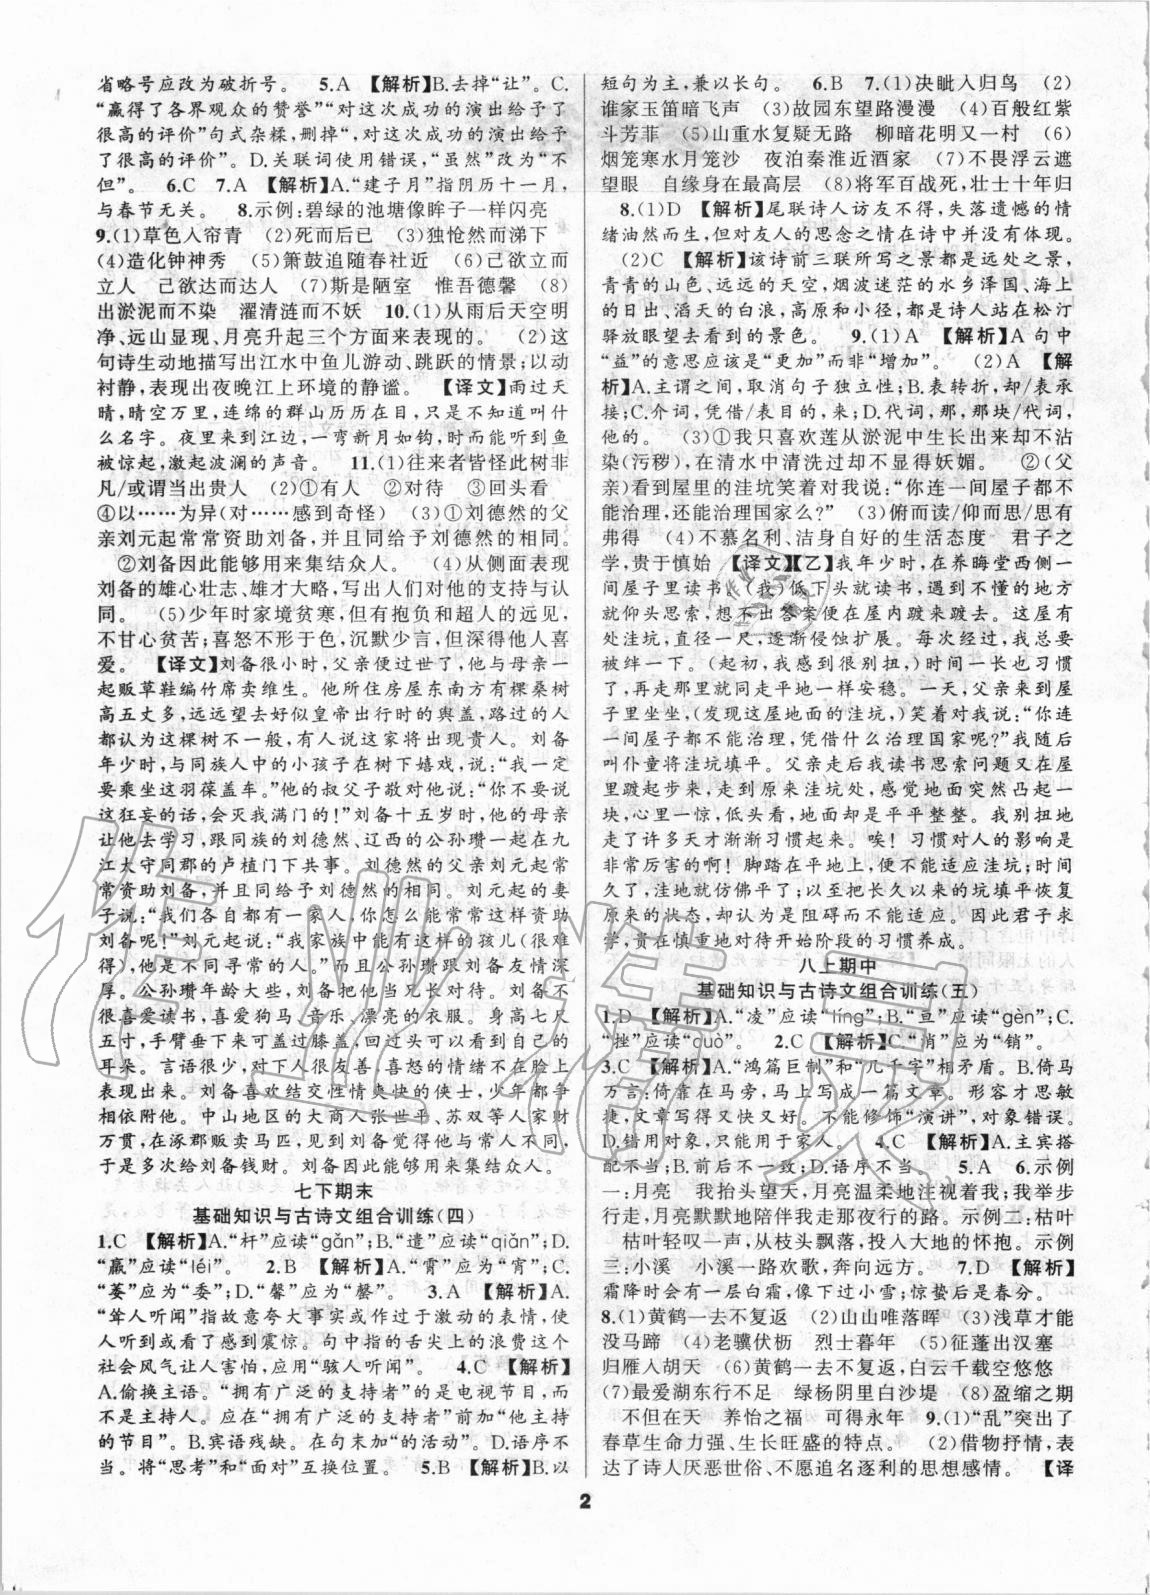 省略号应改为破折号。　5.A　【解析】B.去掉“让”。C.
“赢得了各界观众的赞誉”“对这次成功的演出给予了
很高的评价”句式杂糅,删掉“,对这次成功的演出给予
了很高的评价”。D.关联词使用错误,“虽然”改为“不
但”。　6.C　7.A　【解析】A.“建子月”指阴历十一月,
与春节无关。　8.示例:碧绿的池塘像眸子一样闪亮
9.(1)草色入帘青　(2)死而后已　(3)独怆然而涕下
(4)造化钟神秀　(5)箫鼓追随春社近　(6)己欲立而
立人　己欲达而达人　(7)斯是陋室　惟吾德馨　(8)
出淤泥而不染　濯清涟而不妖　10.(1)从雨后天空明
净、远山显现、月亮升起三个方面来表现的。　(2)这
句诗生动地描写出江水中鱼儿游动、跳跃的情景;以动
衬静,表现出夜晚江上环境的静谧。　【译文】雨过天
晴,晴空万里,连绵的群山历历在目,只是不知道叫什
么名字。夜里来到江边,一弯新月如钩,时而能听到鱼
被惊起,激起波澜的声音。　11.(1)往来者皆怪此树非
凡/或谓当出贵人　(2)①有人　②对待　③回头看
④以……为异(对……感到奇怪)　(3)①刘德然的父
亲刘元起常常资助刘备,并且同给予刘德然的相同。
②刘备因此能够用来集结众人。　(4)从侧面表现
刘备的雄心壮志、雄才大略,写出人们对他的支持与认
同。　(5)少年时家境贫寒,但有抱负和超人的远见,
不甘心贫苦;喜怒不形于色,沉默少言,但深得他人喜
爱。　【译文】刘备很小时,父亲便过世了,他与母亲一
起贩草鞋编竹席卖维生。他所住房屋东南方有棵桑树
高五丈多,远远望去好似皇帝出行时的舆盖,路过的人
都认为这棵树不一般,有人说这家将出现贵人。刘备
年少时,与同族人中的小孩子在树下嬉戏,说:“我一定
要乘坐这羽葆盖车。”他的叔父子敬对他说:“你不要说
这狂妄的话,会灭我满门的!”刘备十五岁时,他的母亲
让他去学习,跟同族的刘德然、辽西的公孙瓒一起在九
江太守同郡的卢植门下共事。刘德然的父亲刘元起常
常资助刘备,并且同给予刘德然的相同。刘元起的妻
子说:“我们各自都有一家人,你怎么能常常这样资助
刘备呢!”刘元起说:“我家族中能有这样的孩儿(很难
得),他是不同寻常的人。”而且公孙瓒与刘备友情深
厚。公孙瓒年龄大些,刘备把他当作兄长对待。刘备不
很喜爱读书,喜爱狗马、音乐、漂亮的衣服。身高七尺
五寸,手臂垂下来可盖过膝盖,回过头可以看到自己的
耳朵。言语很少,对下人很友善,喜怒的情绪不在脸上
表现出来。刘备喜欢结交性情爽快的侠士,少年都争
相依附他。中山地区的大商人张世平、苏双等人家财
万贯,在涿郡贩卖马匹,见到刘备觉得他与常人不同,
于是多次给刘备钱财。刘备因此能够用来集结众人。
七下期末
基础知识与古诗文组合训练(四)
1.C　【解析】A.“杆”应读“gǎn”;B.“遣”应读“qiǎn”;D.
“羸”应读“léi”。　2.B　【解析】A.“霄”应为“宵”;C.
“萎”应为“委”;D.“馨”应为“罄”。　3.A　【解析】A.
“耸人听闻”指故意夸大事实或作过于激动的表情,使
人听到或看了感到震惊。句中指的舌尖上的浪费这个
社会风气让人害怕,应用“骇人听闻”。　4.C　【解析】
A.偷换主语。“拥有广泛的支持者”的是电视节目,而
不是主持人。应在“拥有广泛的支持者”前加“他主持
的节目”。B.宾语残缺。在句末加“的活动”。D.语序不
当。将“思考”和“面对”互换位置。　5.B　【解析】B.以
短句为主,兼以长句。　6.B　7.(1)决眦入归鸟　(2)
谁家玉笛暗飞声　(3)故园东望路漫漫　(4)百般红紫
斗芳菲　(5)山重水复疑无路　柳暗花明又一村　(6)
烟笼寒水月笼沙　夜泊秦淮近酒家　(7)不畏浮云遮
望眼　自缘身在最高层　(8)将军百战死,壮士十年归
8.(1)D　【解析】尾联诗人访友不得,失落遗憾的情
绪油然而生,但对友人的思念之情在诗中并没有体现。
(2)C　【解析】该诗前三联所写之景都是远处之景,
青青的山色、远远的天空,烟波迷茫的水乡泽国、海上
的日出、滔天的白浪,高原和小径,都是诗人站在松汀
驿放眼望去看到的景色。　9.(1)A　【解析】A句中
“益”的意思应该是“更加”而非“增加”。　(2)A　【解
析】A.主谓之间,取消句子独立性;B.表转折,却/表承
接;C.介词,凭借/表目的,来;D.代词,那,那块/代词,
他的。　(3)①我只喜欢莲从淤泥中生长出来却不沾
染(污秽),在清水中清洗过但不显得妖媚。　②(父
亲)看到屋里的洼坑笑着对我说:“你连一间屋子都不
能治理,还能治理国家么?”　(3)俯而读/仰而思/思有
弗得　(4)不慕名利、洁身自好的生活态度　君子之
学,贵于慎始　【译文】【乙】我年少时,在养晦堂西侧一
间屋子里读书。(我)低下头就读书,遇到不懂的地方
就仰头思索,想不出答案便在屋内踱来踱去。这屋有
处洼坑,直径一尺,逐渐侵蚀扩展。每次经过,我总要
被绊一下。(起初,我感到很别扭,)时间一长也习惯
了,再走那里就同走平地一样安稳。一天,父亲来到屋
子里坐坐,(发现这屋地面的洼坑,)笑着对我说:“你连
一间屋子都不能治理,凭借什么治理国家呢?”我随后
叫仆童将洼坑填平。父亲走后我读书思索问题又在屋
里踱起步来,走到原来洼坑处,感觉地面突然凸起一
块,心里一惊,低头看,地面却是平平整整。我别扭地
走了许多天才渐渐习惯起来。唉!习惯对人的影响是
非常厉害的啊!脚踏在平地上,便不能适应洼坑;时间
久了,洼地就仿佛平了;以至把长久以来的坑填平恢复
原来的状态,却认为是阻碍而不能适应。因此君子求
学,贵在慎重地对待开始阶段的习惯养成。
八上期中
基础知识与古诗文组合训练(五)
1.D　【解析】A.“凌”应读“líng”;B.“亘”应读“gèn”;C.
“挫”应读“cuò”。　2.C　【解析】C“消”应为“销”。
3.C　【解析】A.“鸿篇巨制”和“几千字”相矛盾。B.倚马
万言:倚靠在马旁,马上写成一篇文章。形容才思敏
捷,文章写得又快又好。不能修饰“演讲”,对象错误。
D.错用对象,只能用于家人。　4.C　【解析】A.主宾搭
配不当;B.前后不一致。D.语序不当。　5.A　6.示例
一:月亮　我抬头望天,月亮温柔地注视着我;我举步
行走,月亮默默地陪伴我走那夜行的路。示例二:枯叶
枯叶轻叹一声,从枝头飘落,投入大地的怀抱。示例
三:小溪　小溪一路欢歌,奔向远方。　7.D　【解析】
霜降时会有一层白霜,像下过小雪;惊蛰后是春分。
8.(1)黄鹤一去不复返　(2)山山唯落晖　(3)浅草才能
没马蹄　(4)老骥伏枥　烈士暮年　(5)征蓬出汉塞
归雁入胡天　(6)黄鹤一去不复返,白云千载空悠悠
(7)最爱湖东行不足　绿杨阴里白沙堤　(8)盈缩之期
不但在天　养怡之福　可得永年　9.(1)“乱”突出了
春草生命力强、生长旺盛的特点。　(2)借物抒情,表
达了诗人厌恶世俗、不愿追名逐利的思想感情。　【译
2
作业精灵